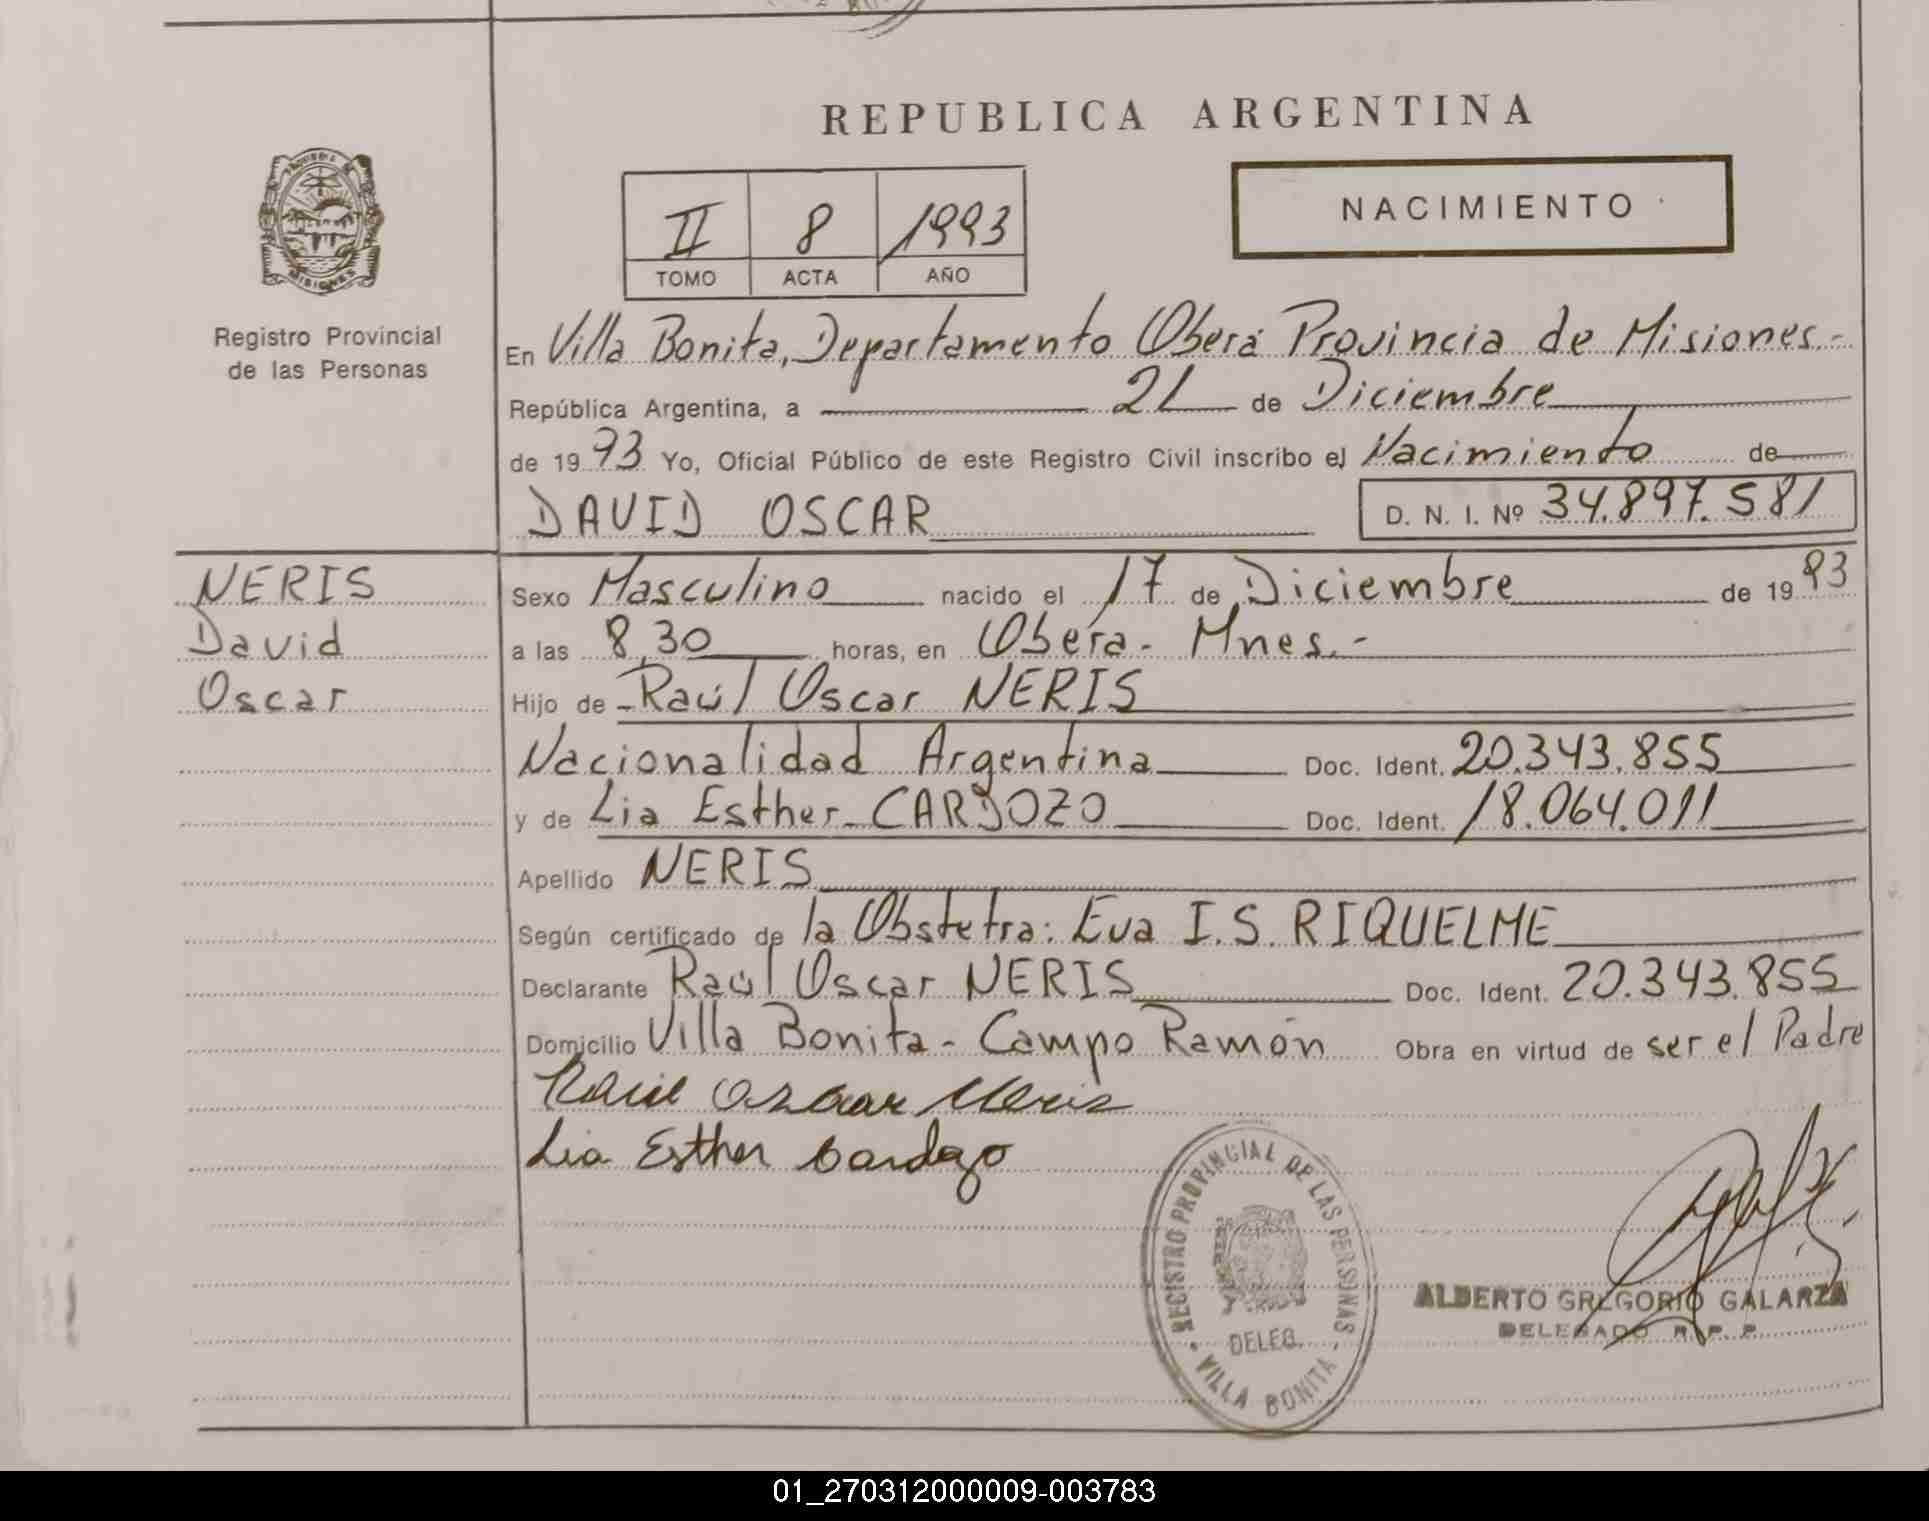 REPUBLICA ARGENTINA
NACIMIENTO
II 8 1993
TOMO ACTA AÑO
PROVINCIA DE MISIONES
Registro Provincial
de las Personas
En Villa Bonita, Departamento Oberá Provincia de Misiones.-
República Argentina, a 21 de Diciembre
de 1993 Yo, Oficial Público de este Registro Civil inscribo el Nacimiento de
DAVID OSCAR D. N. I. Nº 34.897.581
NERIS
David
Oscar
Sexo Masculino nacido el 17 de Diciembre de 1993
a las 8,30 horas, en Oberá - Mnes.-
Hijo de - Raúl Oscar NERIS
Nacionalidad Argentina Doc. Ident. 20.343.855
y de Lia Esther CARDOZO Doc. Ident. 18.064.011
Apellido NERIS
Según certificado de la Obstetra: Eva I.S. RIQUELME
Declarante Raúl Oscar NERIS Doc. Ident. 20.343.855
Domicilio Villa Bonita - Campo Ramón Obra en virtud de ser el Padre
Raul Oscar Neris
Lia Esther Cardozo
REGISTRO PROVINCIAL DE LAS PERSONAS
DELEG.
VILLA BONITA
ALBERTO GREGORIO GALARZA
DELEGADO R. P. P.
01_270312000009-003783